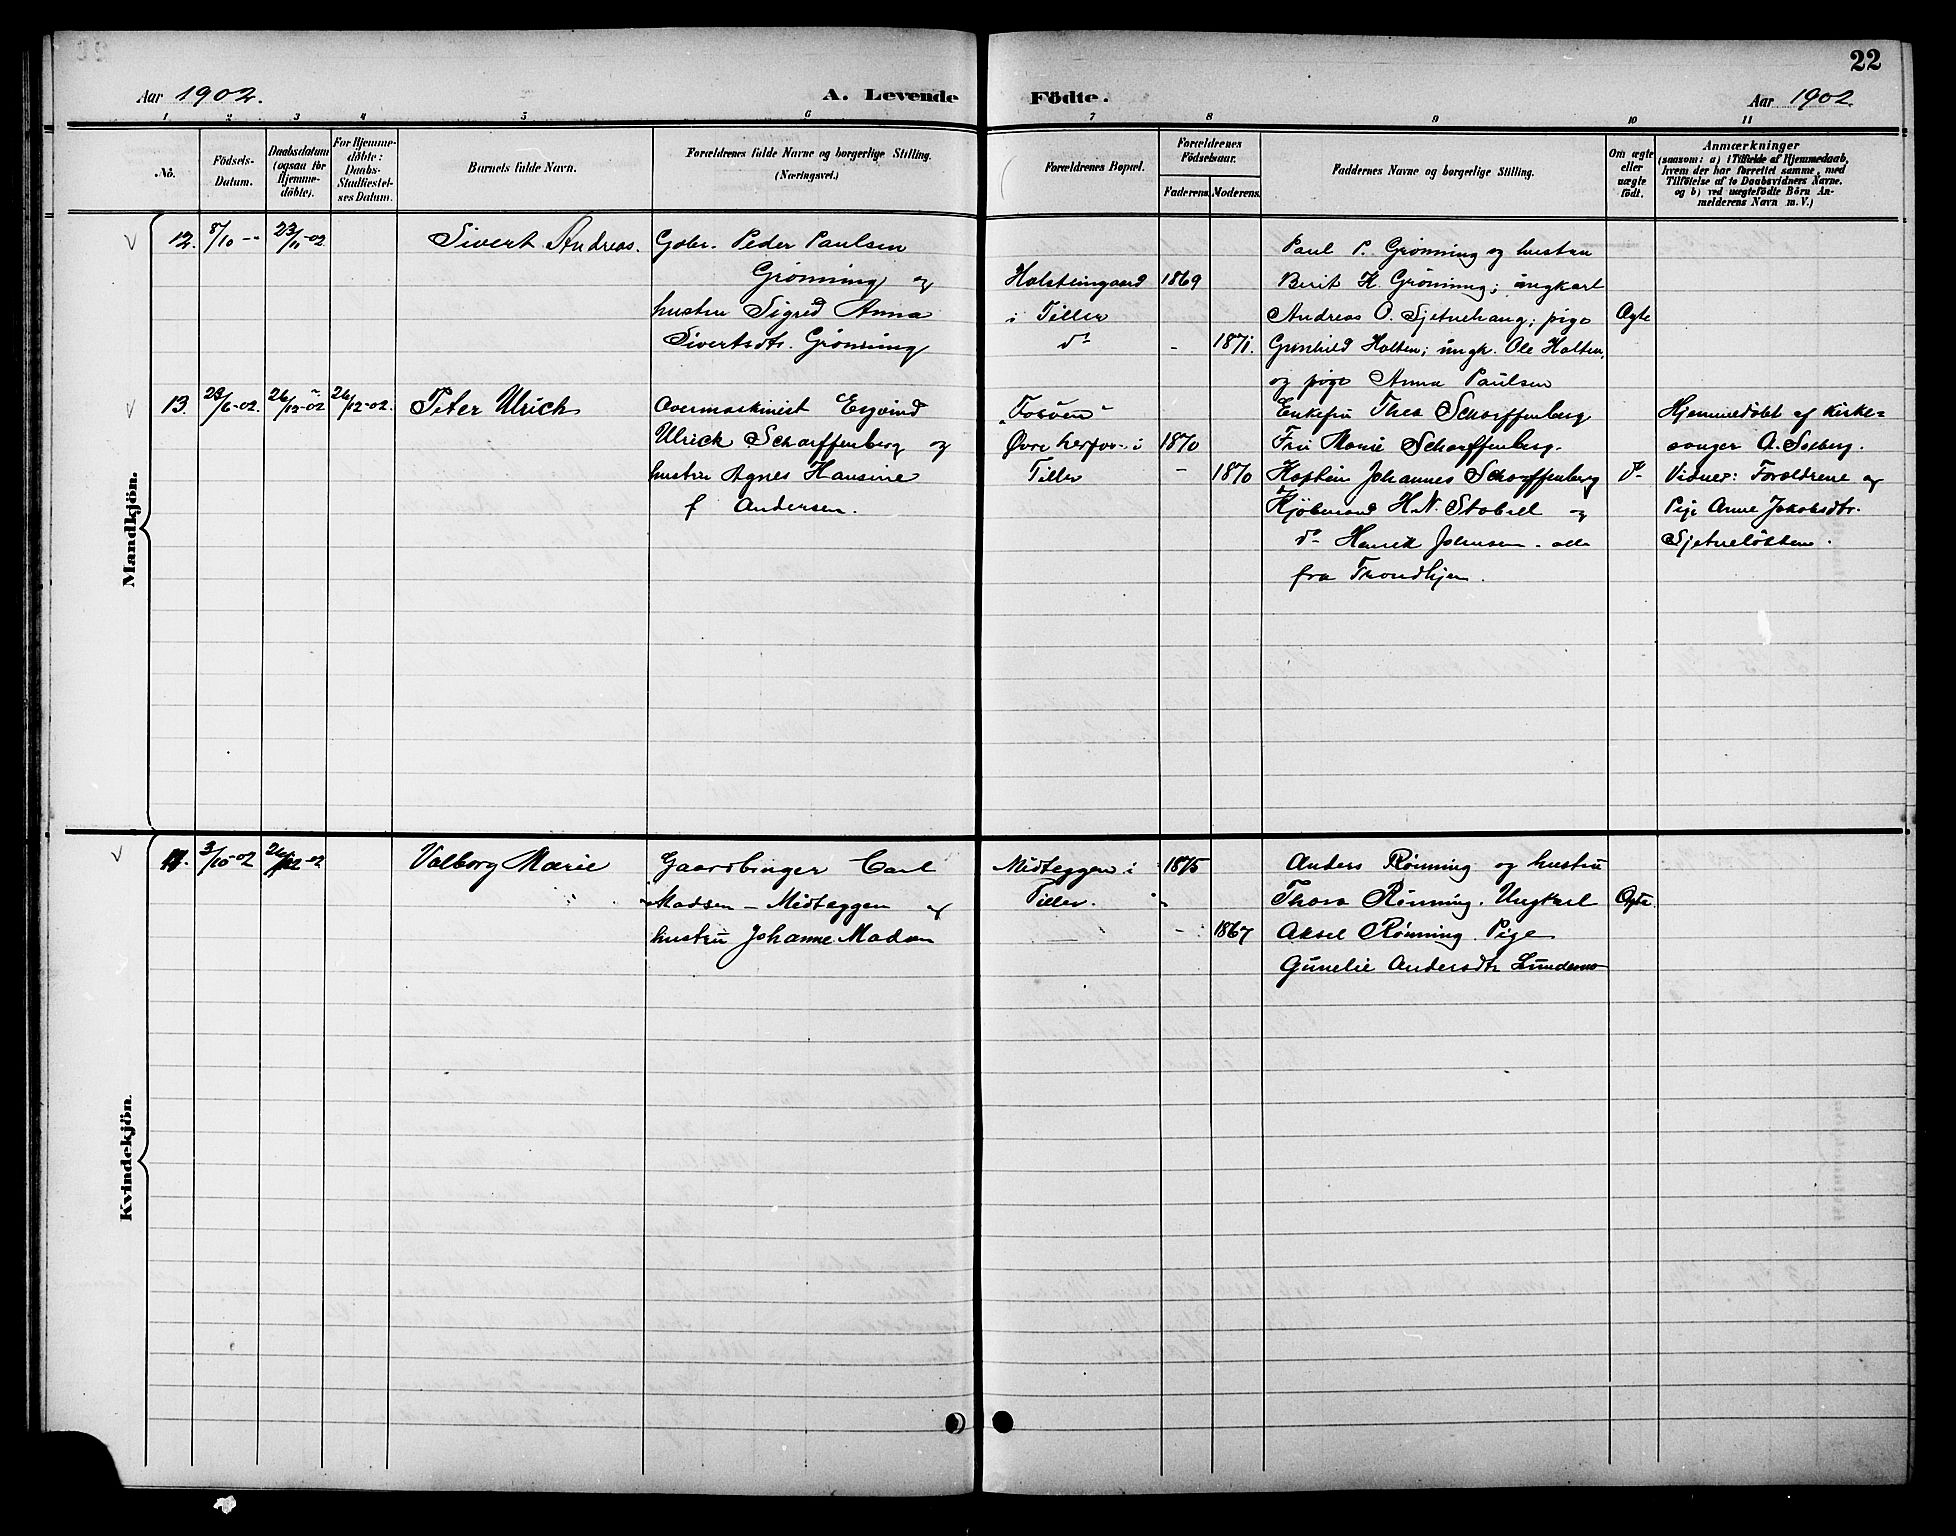 22
Aar 1902.
A. Levende Födte.
Aar 1902.
1 2 3 4 5 6 7 8 9 10 11
No.
Födsels-
Datum.
Daabsdatum
(ogsaa for
Hjemme-
döbte).
For Hjemme-
döbte:
Daabs-
Stadfæstel-
ses Datum.
Barnets fulde Navn.
Forældrenes fulde Navne og borgerlige Stilling.
(Næringsvei.)
Forældrenes Bopæl.
Forældrenes
Födselsaar.
Faderens. Moderens.
Faddernes Navne og borgerlige Stilling.
Om ægte
eller
uægte
födt.
Anmærkninger
(saasom: a) i Tilfælde af Hjemmedaab,
hvem der har forrettet samme, med
Tilföielse af to Daabsvidners Navne,
og b) ved uægtefödte Börn An-
melderens Navn m. V.)
Mandkjön.
12. 8/10 -- 23/11-02
Sivert Andreas.
Gbr. Peder Paulsen
Grönning og
hustru Sigrid Anna
Sivertsdtr. Grönning
Holsteingaard
i Tiller
do
1869
- 1871.
Paul P. Grönning og hustru
Berit K. Grönning; ungkarl
Andreas O. Sjetnehaug; pige
Gunhild Holten; ungk. Ole Holten,
og pige Anna Paulsen
Ægte
13. 23/6-02. 26/12-02 26/12-02.
Peter Ulrich
Overmaskinist Eyvind
Ulrich Scharffenberg og
hustru Agnes Hansine
f Andersen.
Øvre i
Tiller
1870
- 1870
Enkefru Thea Scharffenberg
Fru Marie Scharffenberg.
Kaptein Johannes Scharffenberg
Kjöbmand H. N. Stabell og
do Henrik Johnsen - alle
fra Trondhjem.
do
Hjemmedöbt af Kirke=
sanger A. Solberg.
Vidner: Forældrene og
Pige Anne Jakobsdtr.
Sjetneløkken.
Kvindekjön.
11. 3/10-02 26/12-02
Valborg Marie
Gaardbruger Carl
Madsen - Midteggen og
hustru Johanne Madsen
Midteggen i
Tiller.
1875
- 1867
Anders Rönning og hustru
Thora Rönning. Ungkarl
Aksel Rönning. Pige
Gunelie Andersdtr Lundemo
Ægte.